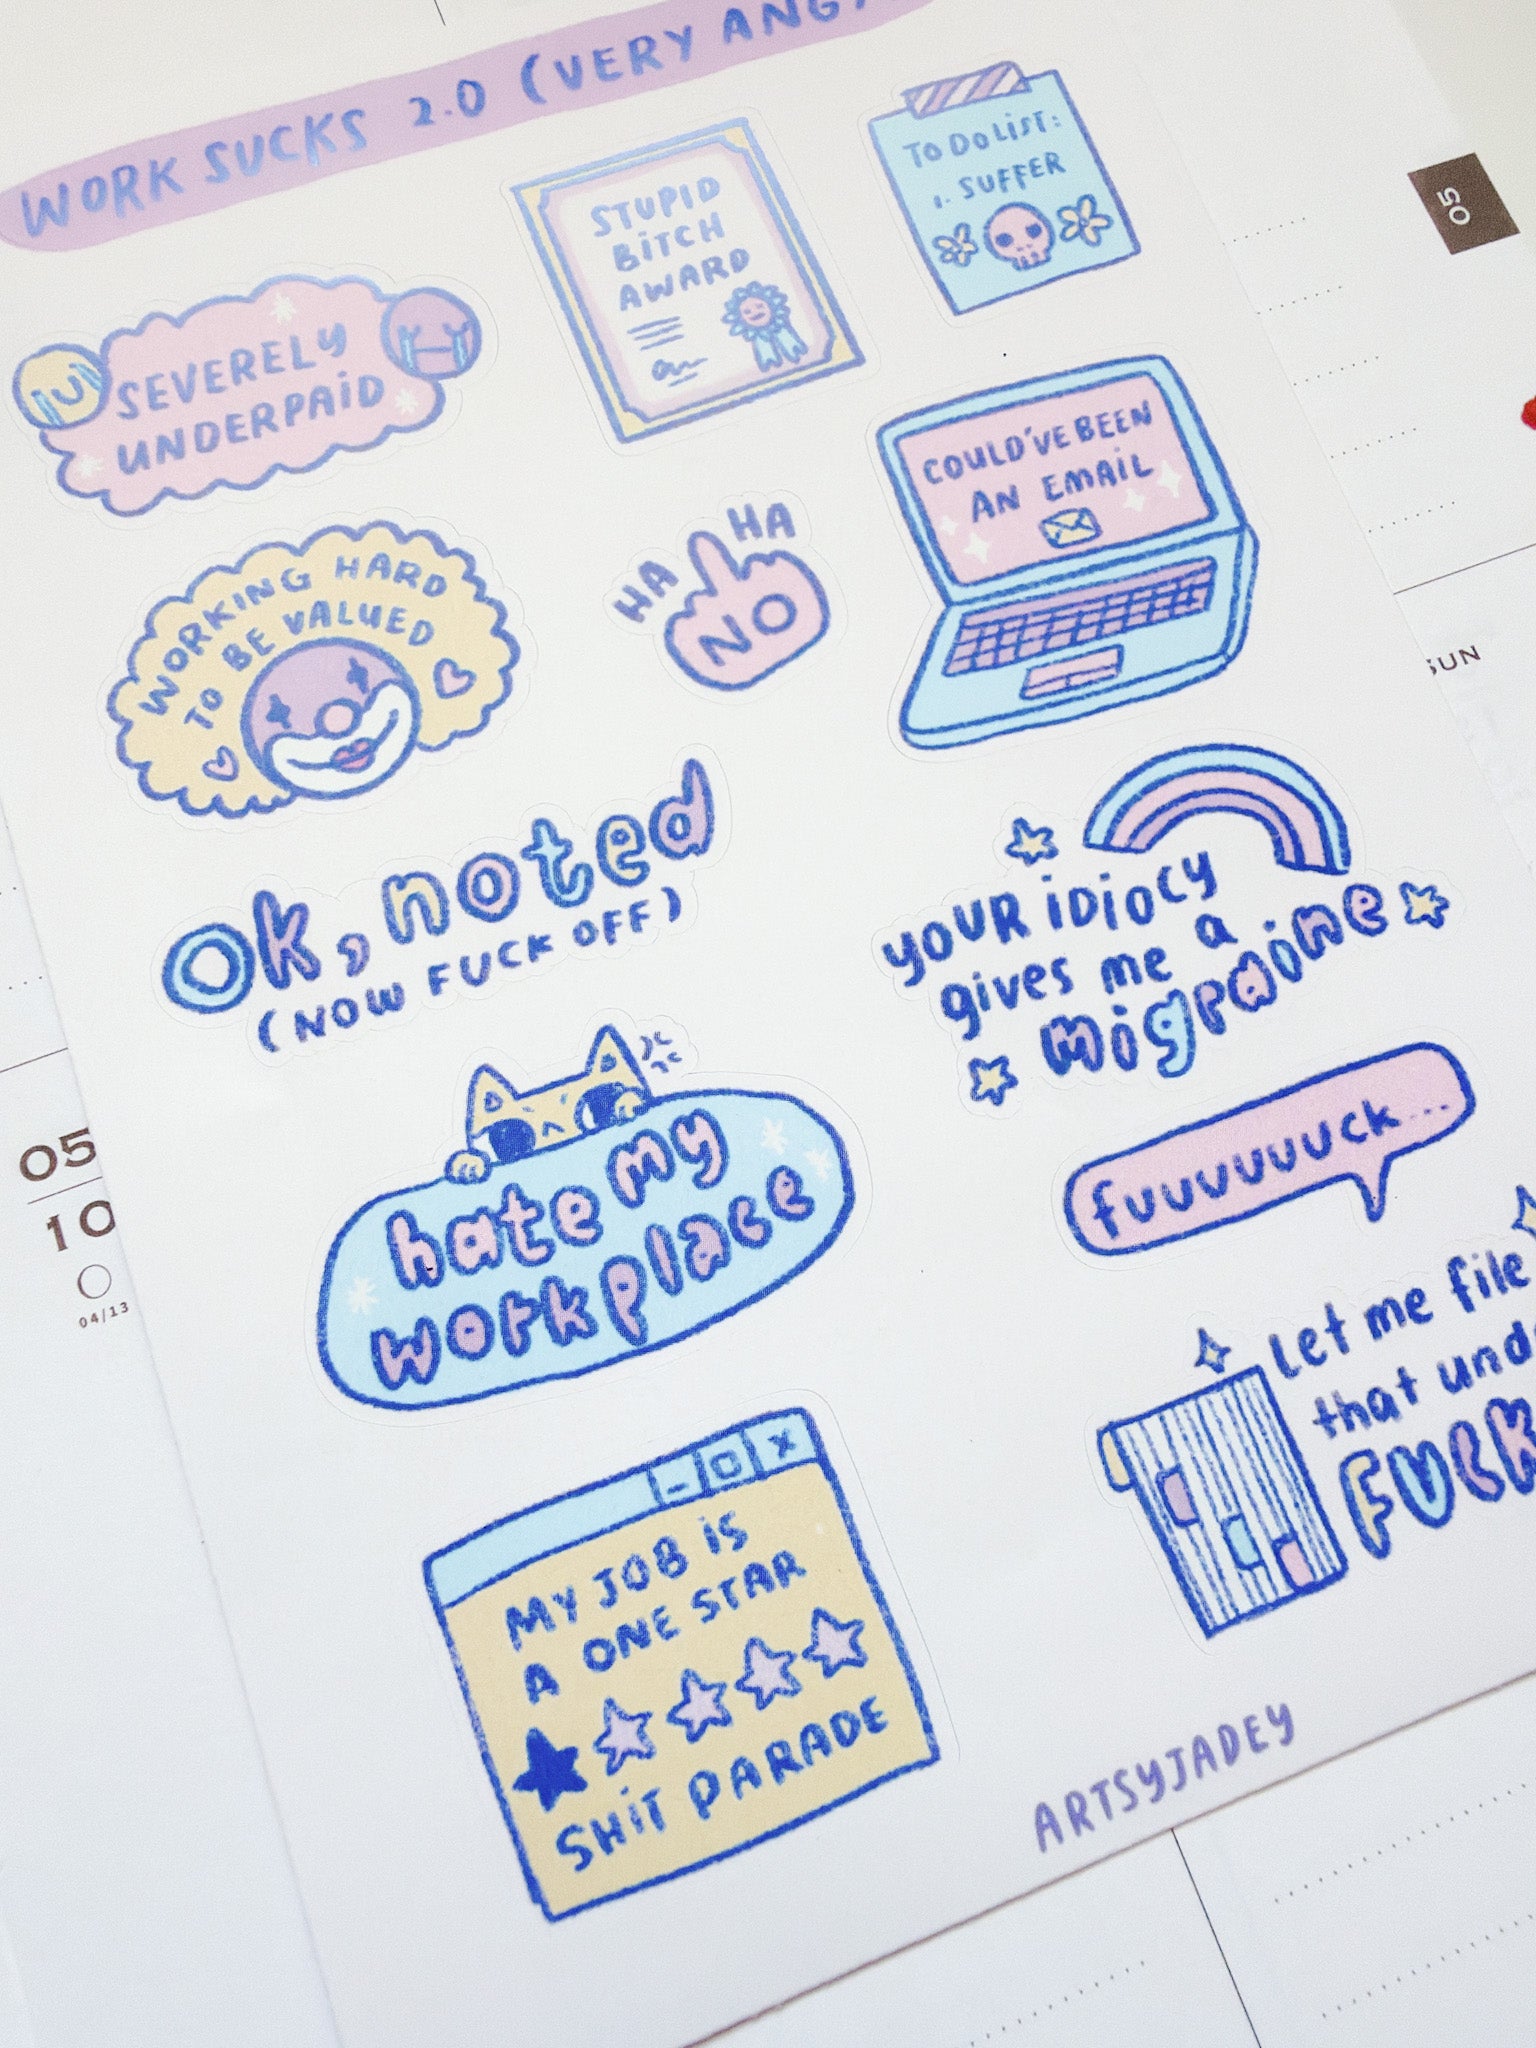 WORK SUCKS 2.0 (VERY ANGY
SEVERELY
UNDERPAID
STUPID
BITCH
AWARD
TO DO LIST:
1. SUFFER
05
WORKING HARD
TO BE VALUED
HA
HA
NO
COULD'VE BEEN
AN EMAIL
SUN
Ok, noted
(NOW FUCK OFF)
yOUR iDiOCY
gives me a
migraine
hate my
workplace
fuuuuuuuck...
05
10
04/13
Let me file
that und
FUCK
MY JOB iS
A ONE STAR
SHiT PARADE
ARTSYJADEY